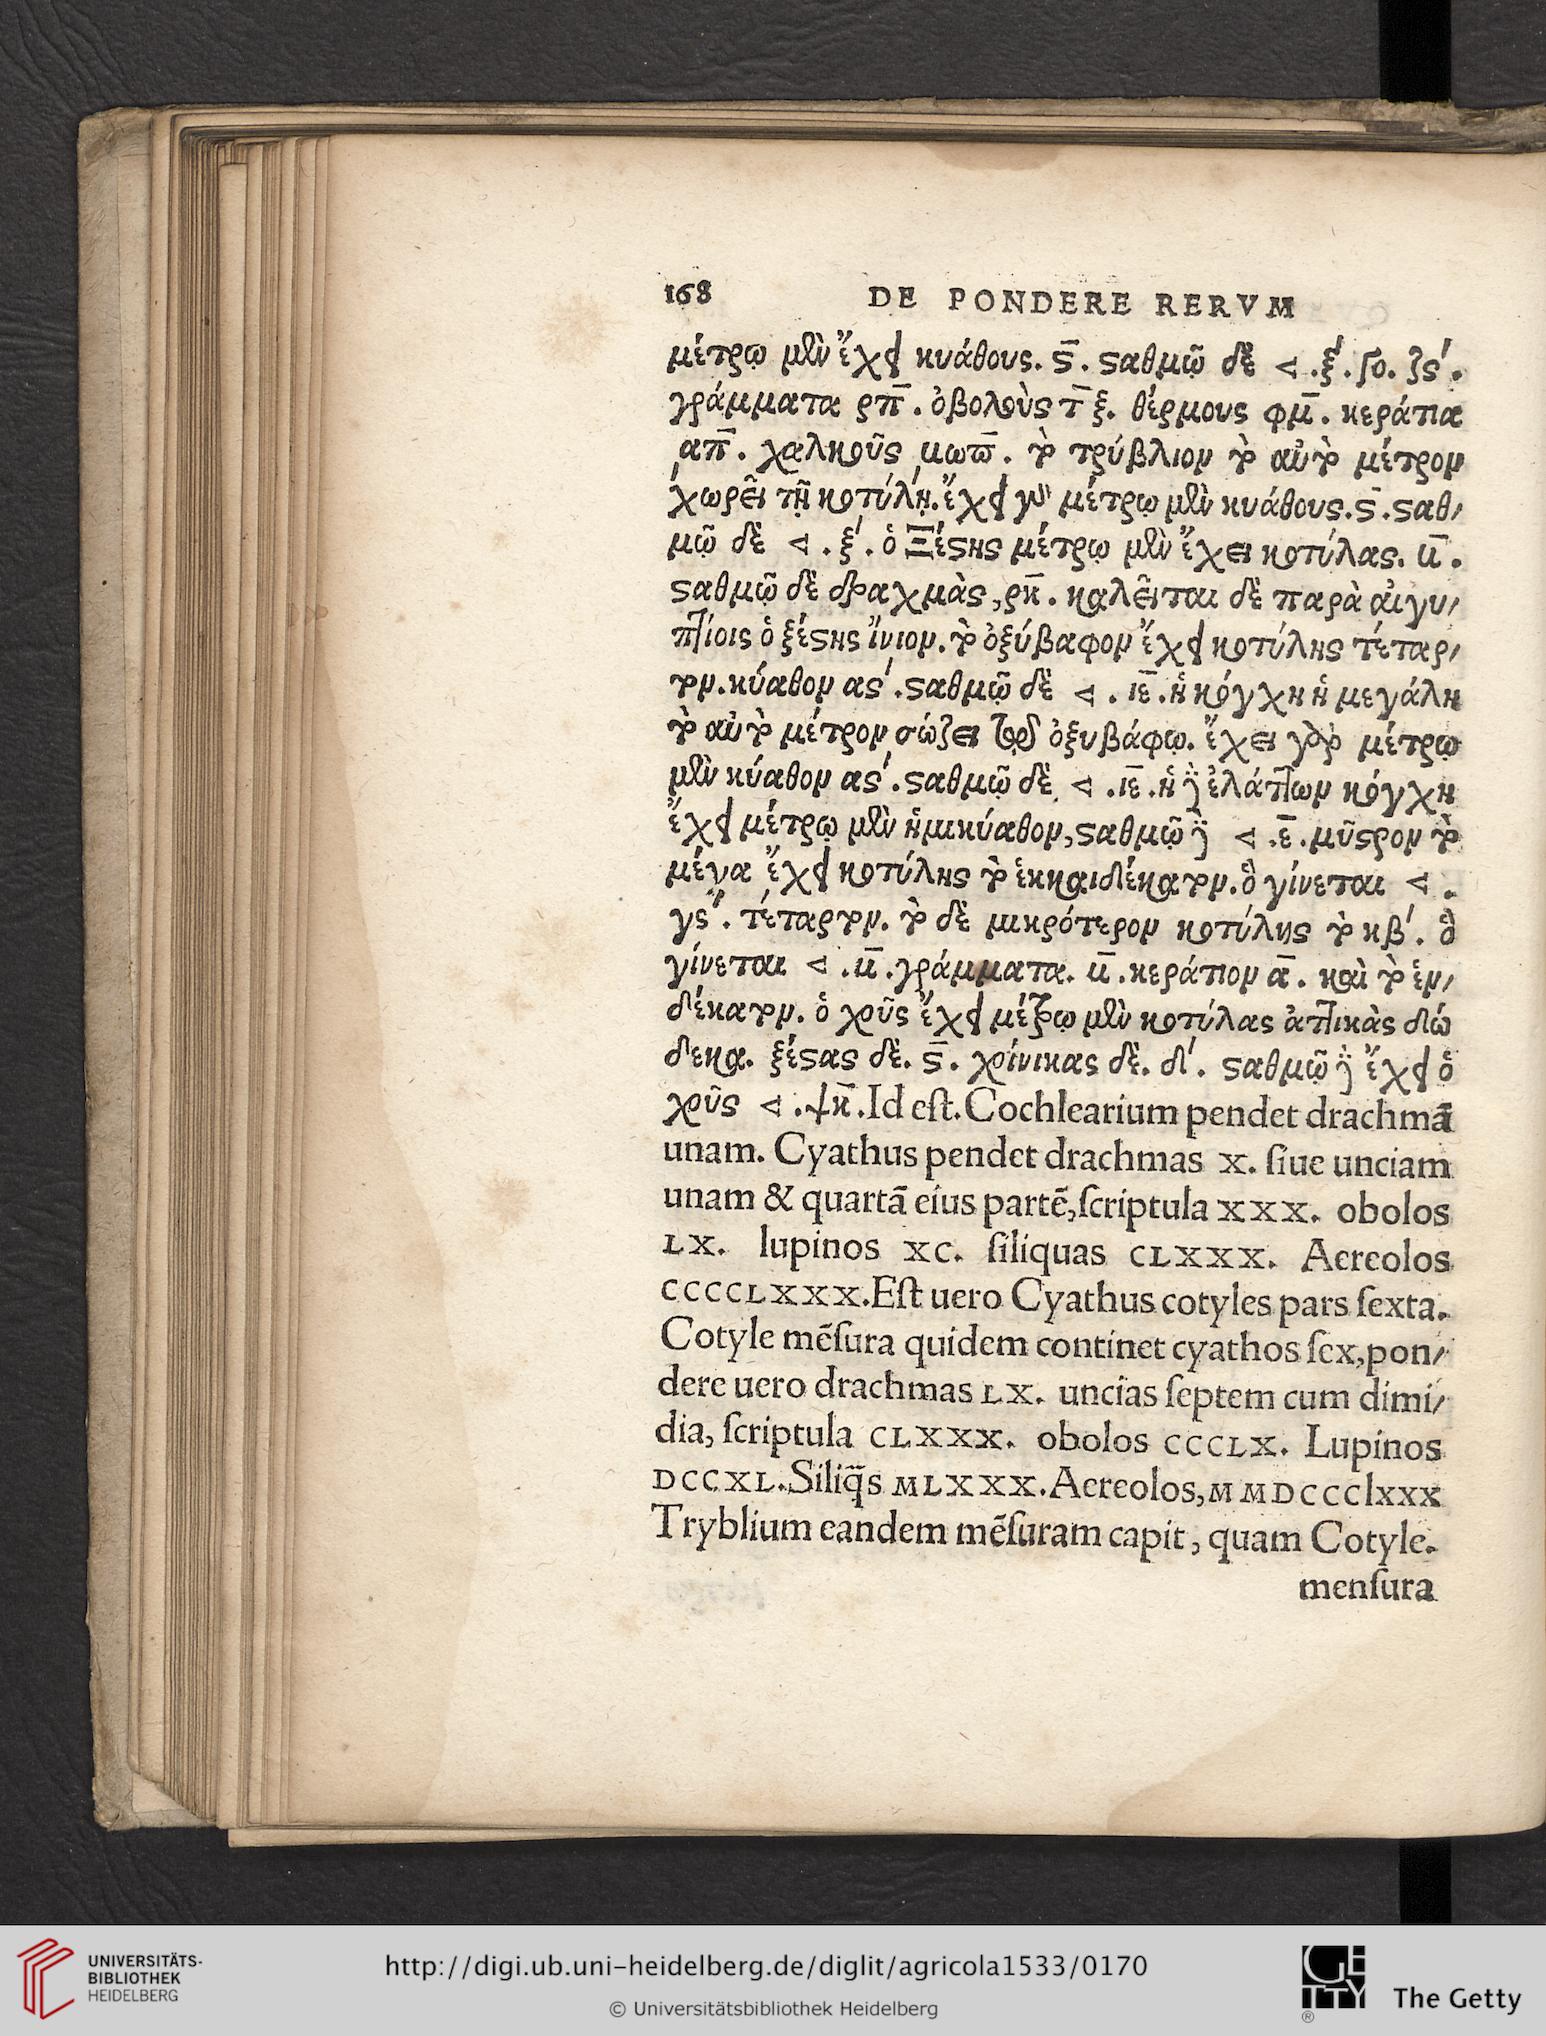 168 DE PONDERE RERVM
μέτρῳ μὲν ἔχει κυάθους. ϛ̅. ϛαθμῷ δὲ < .ξ'. ʃο. ʒϛ'.
γράμματα ρπ̅. ὀβολοὺς τ̅ξ. θέρμους φμ̅. κεράτια
͵απ̅. χαλκοῦς τὸ τρύβλιον τὸ αὐτὸ μέτρον
χωρεῖ τῇ κοτύλῃ. ἔχει γὰρ μέτρῳ μὲν κυάθους. ϛ̅. ϛαθ/
μῷ δὲ < . ξ'. ὁ Ξέϛης μέτρῳ μὲν ἔχει κοτύλας. β̅.
ϛαθμῷ δὲ δραχμὰς, ρκ̅. καλεῖται δὲ παρὰ αἰγυ/
πτίοις ὁ ξέϛης ἴνιον. τὸ ὀξύβαφον ἔχει κοτύλης τέταρ/
τον. κύαθον αϛ'. ϛαθμῷ δὲ < . ιε̅. ἡ κόγχη ἡ μεγάλη
τὸ αὐτὸ μέτρον σώζει τῷ ὀξυβάφῳ. ἔχει γὰρ μέτρῳ
μὲν κύαθον αϛ'. ϛαθμῷ δὲ < . ιε̅. ἡ δὲ ἐλάττων κόγχη
ἔχει μέτρῳ μὲν ἡμικύαθον, ϛαθμῷ δὲ < .ε̅. μῦϛρον τὸ
μέγα ἔχει κοτύλης τὸ ἑκκαιδέκατον. ὃ γίνεται < .
γϛ''. τέταρτον. τὸ δὲ μικρότερον κοτύλης τὸ κβ'. ὃ
γίνεται < .β̅. γράμματα. β̅. κεράτιον α̅. καὶ τὸ ἑν/
δέκατον. ὁ χοῦς ἔχει μέτρῳ μὲν κοτύλας ἀττικὰς δώ
δεκα. ξέϛας δὲ. ϛ̅. χοίνικας δὲ. δ'. ϛαθμῷ δὲ ἔχει ὁ
χοῦς < .ψκ̅. Id eſt. Cochlearium pendet drachmā
unam. Cyathus pendet drachmas X. ſiue unciam
unam & quartā eius partē, ſcriptula XXX. obolos
LX. lupinos XC. ſiliquas CLXXX. Aereolos
CCCCLXXX. Eſt uero Cyathus cotyles pars ſexta.
Cotyle mēſura quidem continet cyathos ſex, pon/
dere uero drachmas LX. uncias ſeptem cum dimi/
dia, ſcriptula CLXXX. obolos CCCLX. Lupinos
DCCXL. Siliq̃s MLXXX. Aereolos, MMDCCClxxx
Tryblium eandem mēſuram capit, quam Cotyle.
menſura
UNIVERSITÄTS-
BIBLIOTHEK
HEIDELBERG
http://digi.ub.uni-heidelberg.de/diglit/agricola1533/0170
© Universitätsbibliothek Heidelberg
GETTY
®
The Getty